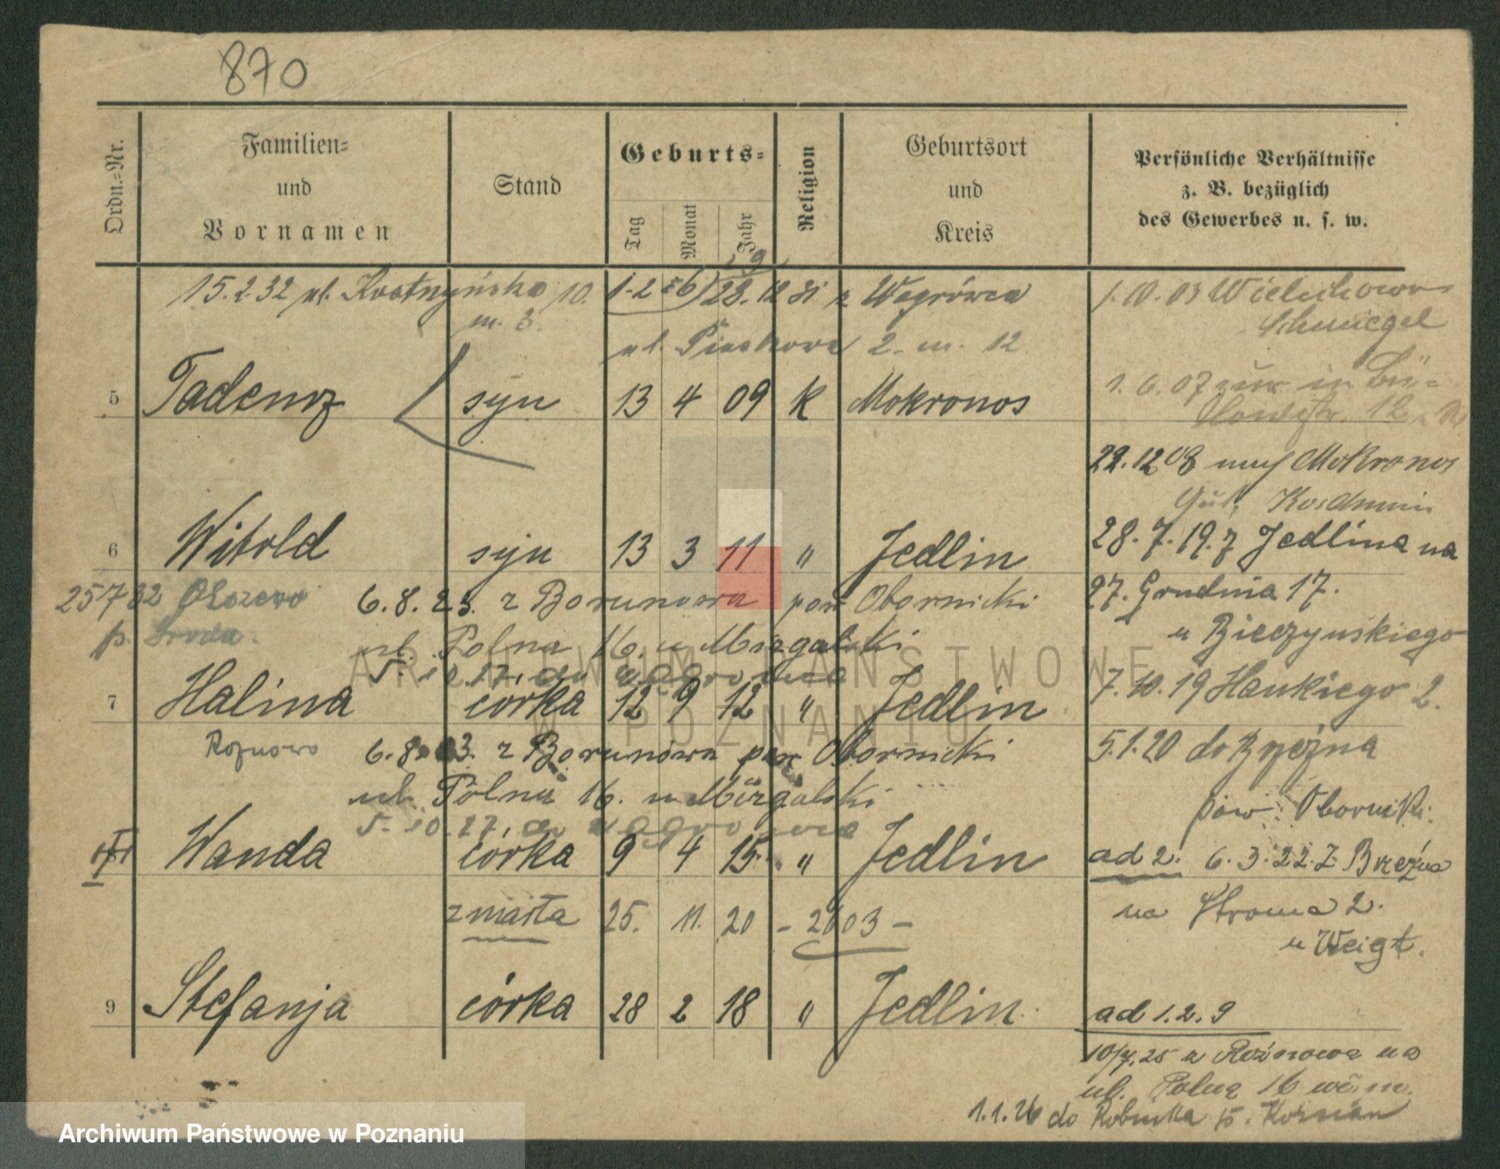 870
Ordn.-Nr.
Familien- und Vornamen
Stand
Geburts-
Tag Monat Jahr
Religion
Geburtsort und Kreis
Persönliche Verhältnisse
z. B. bezüglich
des Gewerbes u. s. w.
15.2.32 ul. 10. 1.2 28.12 31 z Wągrówca
m. 3.
ul. Piaskowa 2. m. 12
1.10.03
Schmiegel
1.6.07
12
5 Tadeusz syn 13 4 09 k Mokronos
22.12 08 Mokronos
Gut, Koschmin
6 Witold syn 13 3 11 " Jedlin
28.7.19.7 Jedlina na
27. Grudnia 17.
u Bieczynskiego
25 7 32
p. Sroda.
6.8.23. z Borunowa pow Obornicki
ul. Polna 16. u Mizgalski
5. 17. do
7 Halina córka 12 9 12 " Jedlin
7.10.19 Haukiego 2.
Roznowo
6.8. z Borunowa pow Obornicki
ul. Polna 16. u Mizgalski
5. 10. 27. do
5.1.20 do
pow. Obornicki.
Wanda córka 9 4 15 " Jedlin
ad 2. 6.3.22. z
zmarła 25. 11. 20 - 2603 -
na Stroma 2.
u Weigt.
9 Stefanja córka 28 2 18 " Jedlin
ad 1.2.9
10/7.25 z Rożnowa na
ul. Polną 16
1.1.26 do
ARCHIWUM PAŃSTWOWE
W POZNANIU
Archiwum Państwowe w Poznaniu